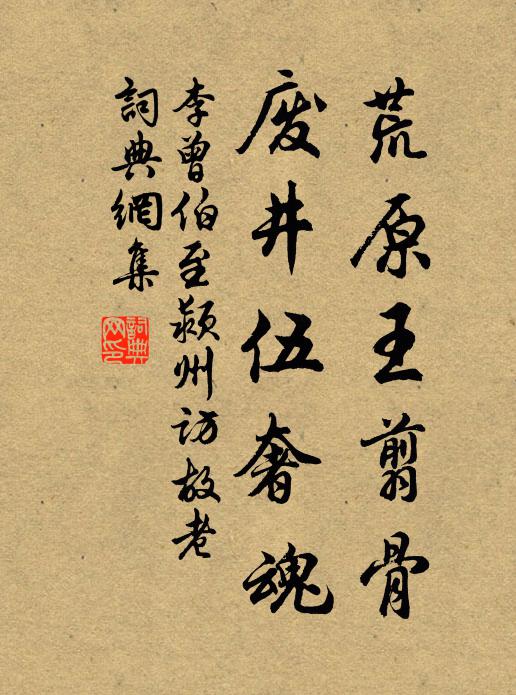 荒原王翦骨
废井伍奢魂
李曾伯至颍州访故老
詞典網集
詞典
网印